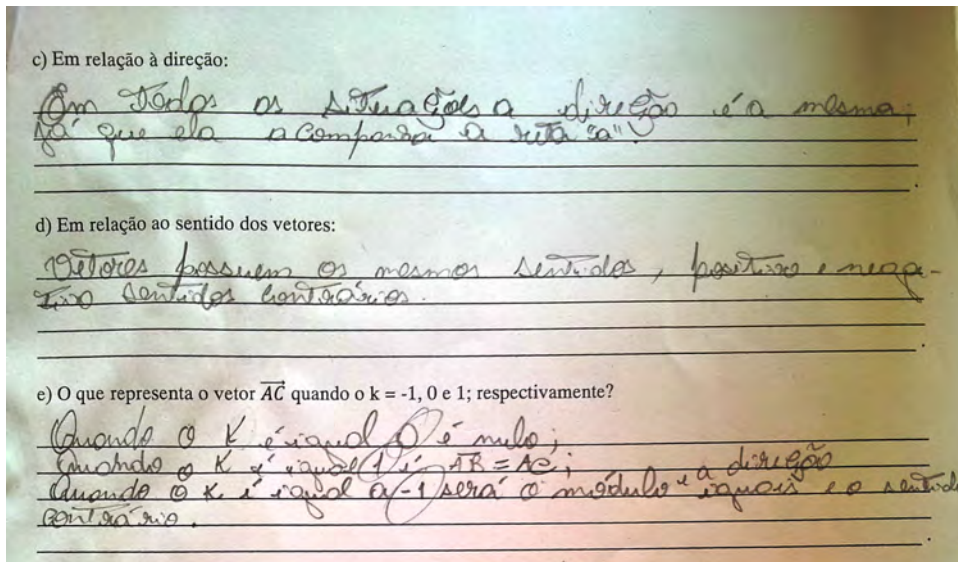 c) Em relação à direção:
Em todas as situações a direção é a mesma,
já que ela acompanha a reta "a".
d) Em relação ao sentido dos vetores:
Vetores possuem os mesmos sentidos, positivo e nega-
tivo sentidos contrários.
e) O que representa o vetor \overrightarrow{AC} quando o k = -1, 0 e 1; respectivamente?
Quando o K é igual 0 é nulo;
Quando o K é igual 1 é AB = AC;
Quando o K é igual a -1 será o módulo e a direção iguais e o sentido
contrário.